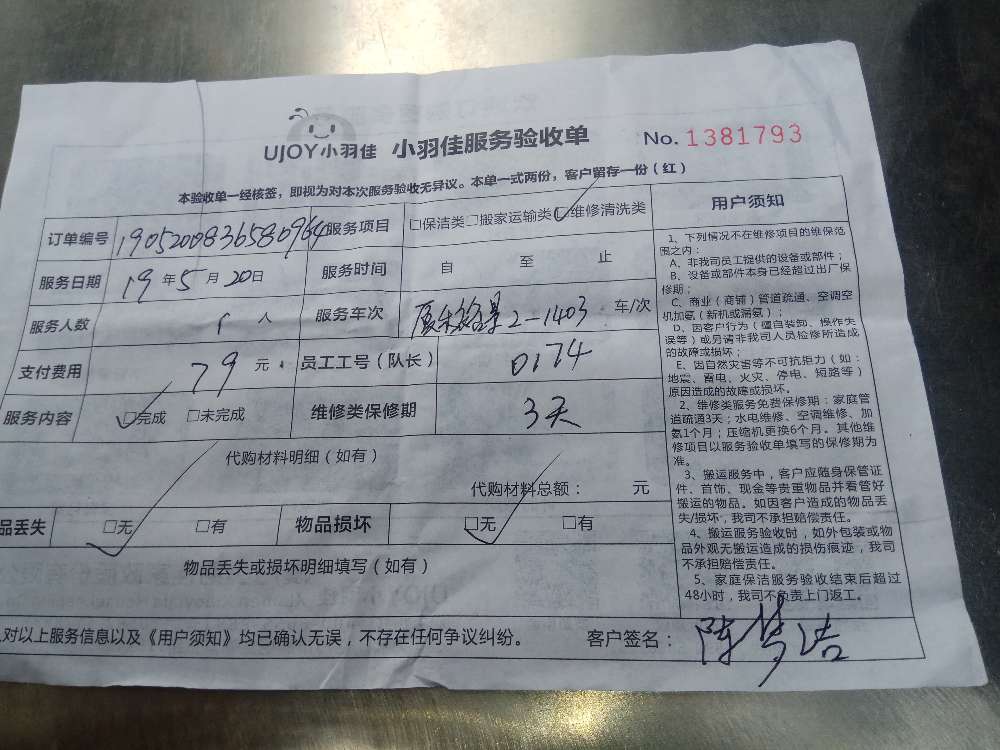 UJOY小羽佳 小羽佳服务验收单 No. 1381793
本验收单一经核签，即视为对本次服务验收无异议。本单一式两份，客户留存一份（红）
订单编号 1905200836580964 服务项目 □保洁类□搬家运输类□维修清洗类
服务日期 19年5月20日 服务时间 自 至 止
服务人数 1人 服务车次 2-1403 车/次
支付费用 79元 员工工号（队长） 0174
服务内容 □完成 □未完成 维修类保修期 3天
代购材料明细（如有）
代购材料总额： 元
品丢失 □无 □有 物品损坏 □无 □有
物品丢失或损坏明细填写（如有）
对以上服务信息以及《用户须知》均已确认无误，不存在任何争议纠纷。 客户签名：陈梦洁
用户须知
1、下列情况不在维修项目的维保范
围之内：
A、非我司员工提供的设备或部件；
B、设备或部件本身已经超过出厂保
修期；
C、商业（商辅）管道疏通、空调空
机加氨（新机或漏氨）；
D、因客户行为（擅自装卸、操作失
误等）或另请非我司人员检修所造成
的故障或损坏；
E、因自然灾害等不可抗拒力（如：
地震、雷电、火灾、停电、短路等）
原因造成的故障或损坏。
2、维修类服务免费保修期：家庭管
道疏通3天；水电维修、空调维修、加
氨1个月；压缩机更换6个月。其他维
修项目以服务验收单填写的保修期为
准。
3、搬运服务中，客户应随身保管证
件、首饰、现金等贵重物品并看管好
搬运的物品。如因客户造成的物品丢
失/损坏，我司不承担赔偿责任。
4、搬运服务验收时，如外包装或物
品外观无搬运造成的损伤痕迹，我司
不承担赔偿责任。
5、家庭保洁服务验收结束后超过
48小时，我司不负责上门返工。